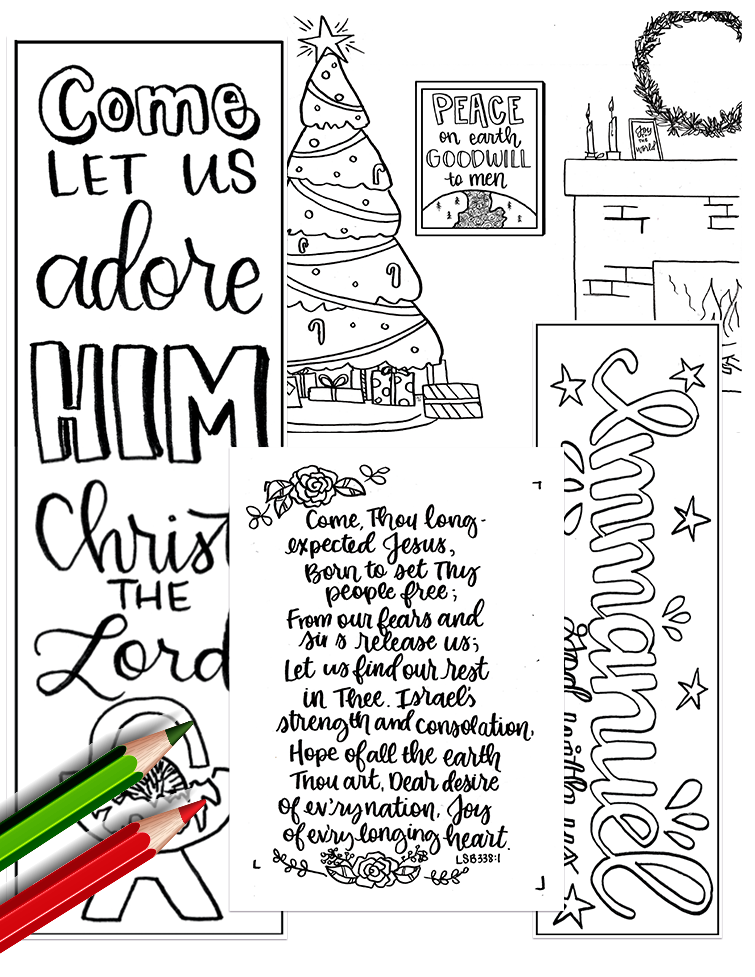 Come
LET US
adore
HIM
Christ
THE
Lord
PEACE
on earth
GOODWILL
to men
Joy
TO THE
world
Come, Thou long-
expected Jesus,
Born to set Thy
people free;
From our fears and
sins release us;
Let us find our rest
in Thee. Israel's
strength and consolation,
Hope of all the earth
Thou art, Dear desire
of ev'ry nation, Joy
of ev'ry longing heart.
LSB 338:1
Immanuel
God with us